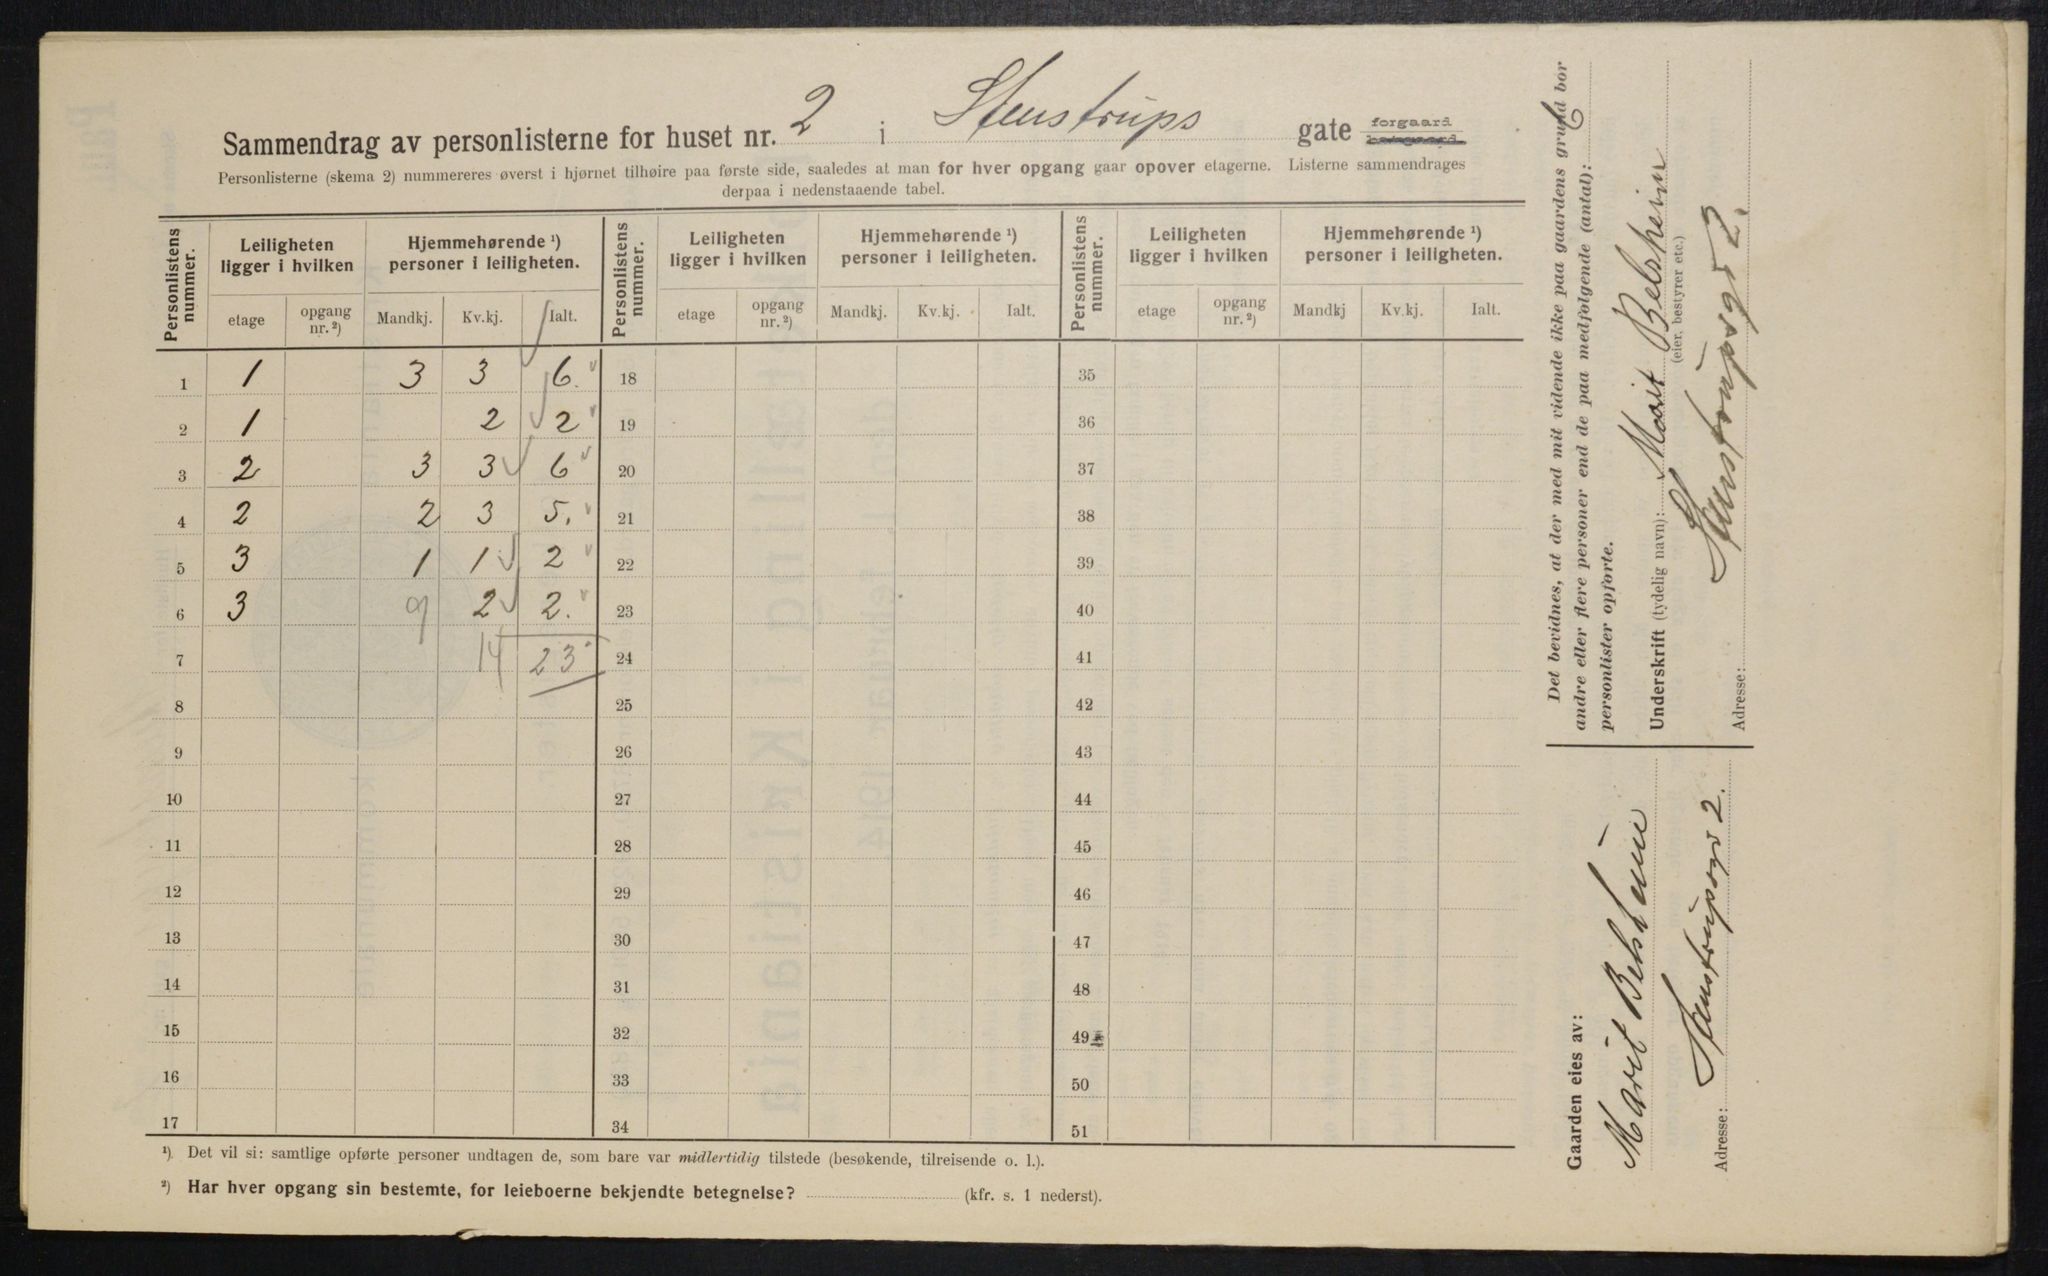 Sammendrag av personlisterne for huset nr. 2 i Stenstrups gate forgaard bakgaard
Personlisterne (skema 2) nummereres øverst i hjørnet tilhøire paa første side, saaledes at man for hver opgang gaar opover etagerne. Listerne sammendrages
derpaa i nedenstaaende tabel.
Personlistens nummer. Leiligheten ligger i hvilken Hjemmehørende ¹) personer i leiligheten. Personlistens nummer. Leiligheten ligger i hvilken Hjemmehørende ¹) personer i leiligheten. Personlistens nummer. Leiligheten ligger i hvilken Hjemmehørende ¹) personer i leiligheten.
etage opgang nr. ²) Mandkj. Kv.kj. Ialt. etage opgang nr. ²) Mandkj. Kv.kj. Ialt. etage opgang nr. ²) Mandkj Kv.kj. Ialt.
1 1 3 3 6. 18 35
2 1 2 2 19 36
3 2 3 3 6 20 37
4 2 2 3 5. 21 38
5 3 1 1 2 22 39
6 3 9 2 2. 23 40
7 14 23 24 41
8 25 42
9 26 43
10 27 44
11 28 45
12 29 46
13 30 47
14 31 48
15 32 49
16 33 50
17 34 51
¹) Det vil si: samtlige opførte personer undtagen de, som bare var midlertidig tilstede (besøkende, tilreisende o. l.).
²) Har hver opgang sin bestemte, for leieboerne bekjendte betegnelse? (kfr. s. 1 nederst).
Det bevidnes, at der med mit vidende ikke paa gaardens grund bor
andre eller flere personer end de paa medfølgende (antal): 6
personlister opførte.
Underskrift (tydelig navn): Marit Belsheim
(eier, bestyrer etc.)
Adresse: Stenstrupsgt 2.
Gaarden eies av:
Marit Belsheim
Adresse: Stenstrupsgt 2.